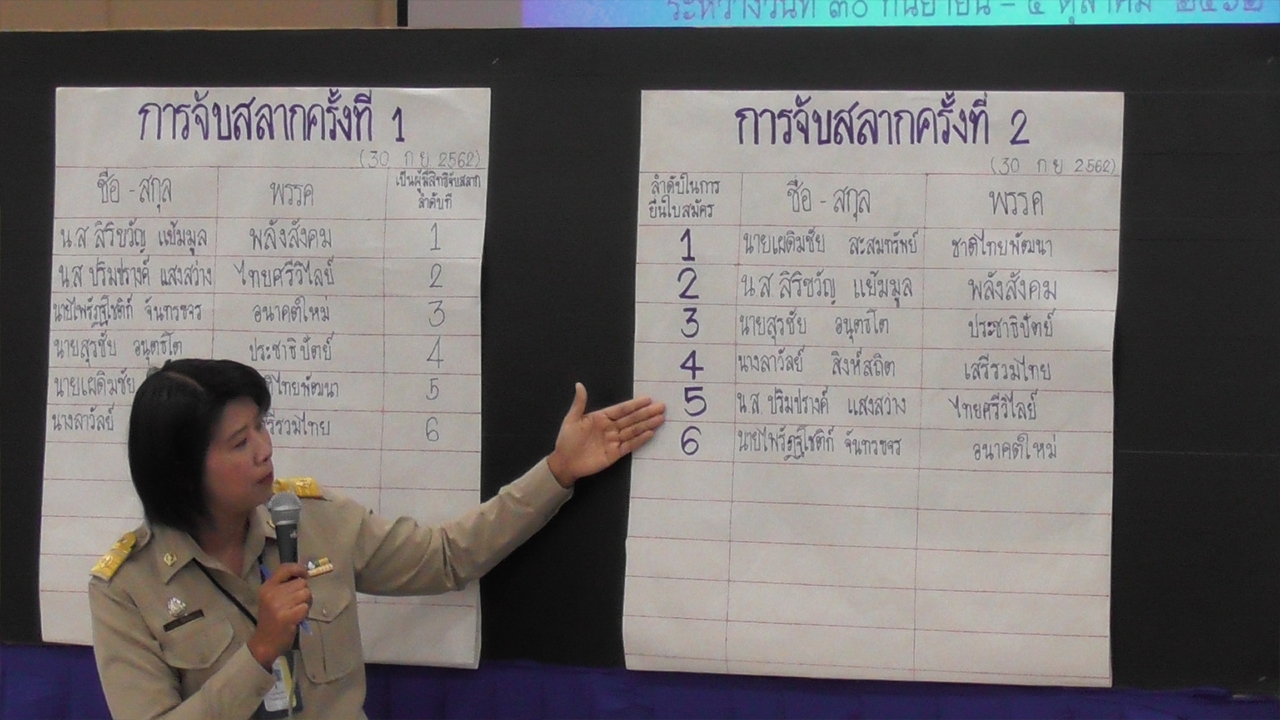 ระหว่างวันที่ ๓๐ กันยายน - ๔ ตุลาคม ๒๕๖๒
การจับสลากครั้งที่ 1
(30 ก ย 2562)
ชื่อ - สกุล พรรค เป็นผู้มีสิทธิจับสลาก
ลำดับที่
น ส สิริขวัญ แย้มมูล พลังสังคม 1
น.ส ปริมปรางค์ แสงสว่าง ไทยศรีวิไลย์ 2
นายไพรัฏฐโชติก์ จันทรขจร อนาคตใหม่ 3
นายสุรชัย อนุตธโต ประชาธิปัตย์ 4
นายเผดิมชัย ไทยพัฒนา 5
นางลาวัลย์ รีรวมไทย 6
การจับสลากครั้งที่ 2
(30 ก ย 2562)
ลำดับในการ
ยื่นใบสมัคร ชื่อ - สกุล พรรค
1 นายเผดิมชัย สะสมทรัพย์ ชาติไทยพัฒนา
2 น ส สิริขวัญ แย้มมูล พลังสังคม
3 นายสุรชัย อนุตธโต ประชาธิปัตย์
4 นางลาวัลย์ สิงห์สถิต เสรีรวมไทย
5 น ส ปริมปรางค์ แสงสว่าง ไทยศรีวิไลย์
6 นายไพรัฏฐโชติก์ จันทรขจร อนาคตใหม่